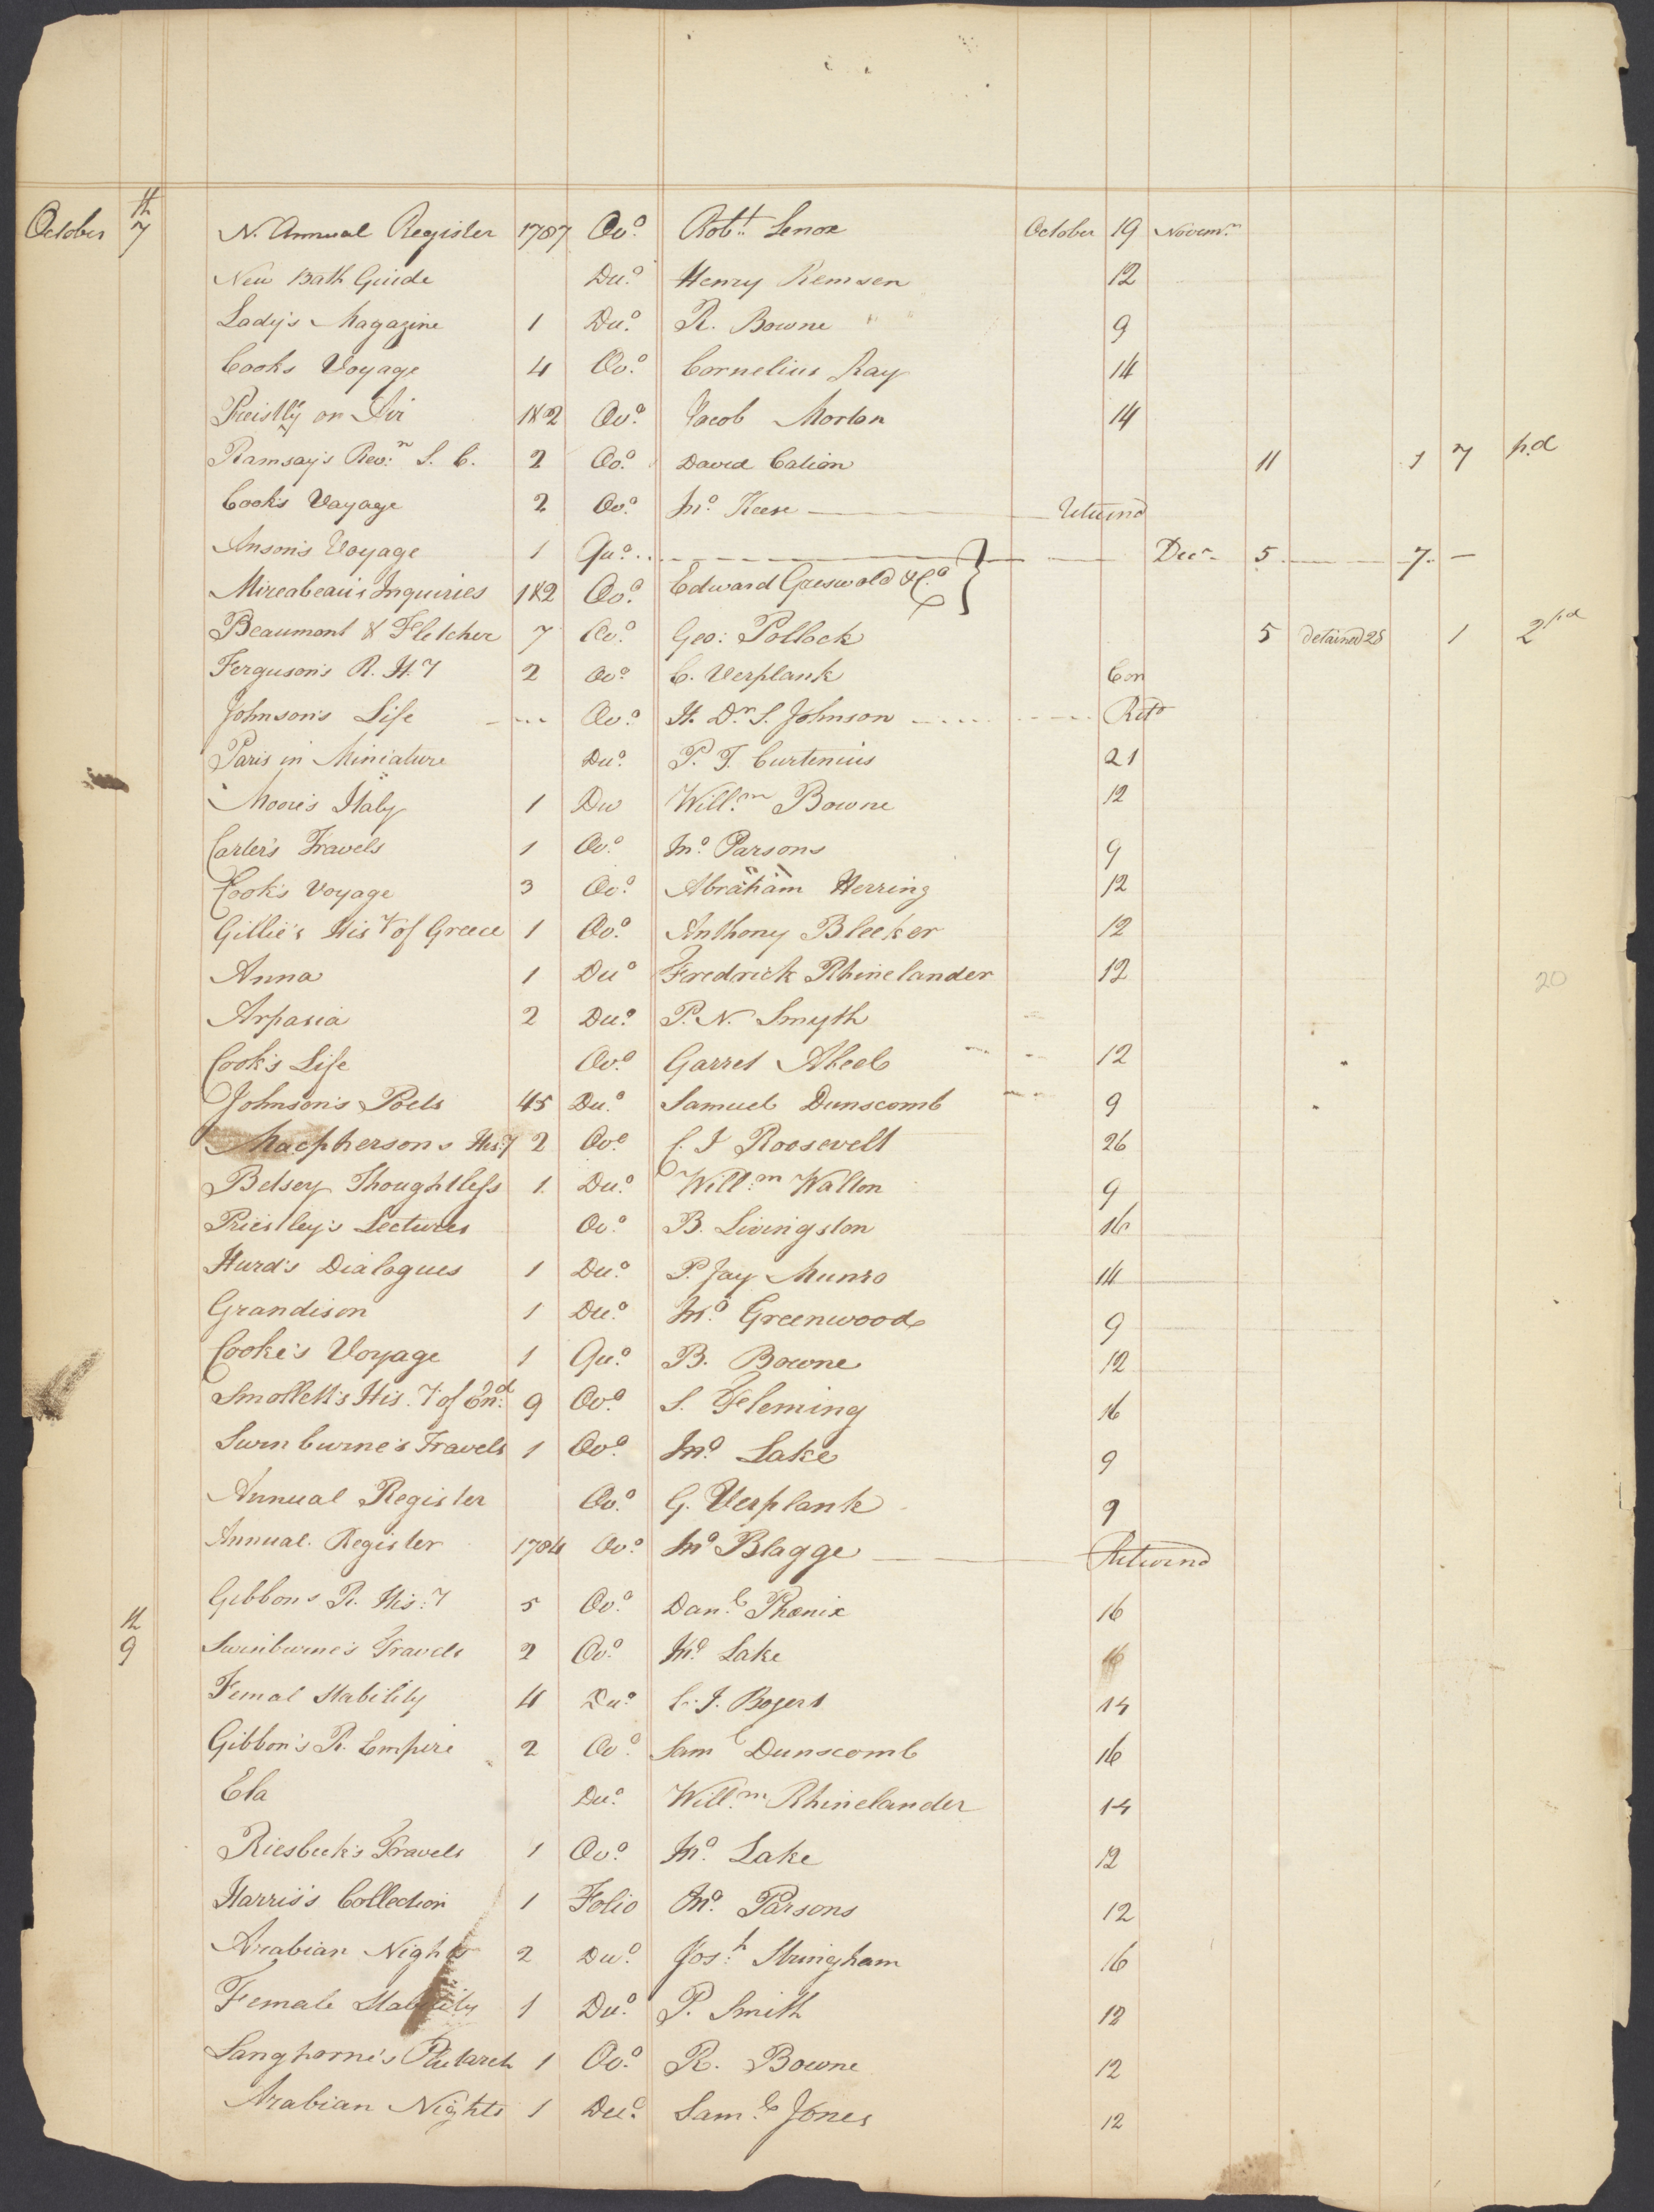 October 7th N. Annual Register 1787 Ov.o Robt. Lenox October 19 Novemr.
New Bath Guide Du.o Henry Remsen 12
Lady's Magazine 1 Du.o R. Bowne 9
Cooks Voyage 4 Ov.o Cornelius Ray 14
Preistly on Air 1&2 Ov.o Jacob Morton 14
Ramsay's Rev:n S. C. 2 Ov.o David Cation 11 1 7 p.d
Cook's Voyage 2 Ov.o Jno. Keese Returnd
Anson's Voyage 1 Qu.o Decr. 5 7 -
Mireabeau's Inquiries 1&2 Ov.o Edward Greswold & Co. }
Beaumont & Fletcher 7 Ov.o Geo: Pollock 5 detained 28 1 2 pd
Ferguson's R. H.y 2 Ov.o C. Verplank Con
Johnson's Life Ov.o H. Dr. S. Johnson Retd
Paris in Miniature Du.o P. T. Curtenius 21
Moore's Italy 1 Du Will.m Bowne 12
Carter's Travels 1 Ov.o Jno. Parsons 9
Cook's Voyage 3 Ov.o Abraham Herring 12
Gillie's His.y of Greece 1 Ov.o Anthony Bleeker 12
Anna 1 Du.o Fredrick Rhinelander 12
Arpasia 2 Du.o P. N. Smyth
20
Cook's Life Ov.o Garret Abeel 12
Johnson's Poets 45 Du.o Samuel Dunscomb 9
Macphersons His:y 2 Ov.o C. I Roosevelt 26
Betsey Thoughtless 1 Du.o Will.m Walton 9
Priestley's Lectures Ov.o B. Livingston 16
Hurd's Dialogues 1 Du.o P. Jay Munro 14
Grandison 1 Du.o Jno. Greenwood 9
Cooke's Voyage 1 Qu.o B. Bowne 12
Smollett's His.y of End. 9 Ov.o S. Fleming 16
Swinburne's Travels 1 Ov.o Jno. Lake 9
Annual Register Ov.o G. Verplank 9
Annual Register 1784 Ov.o Jno Blagge Returnd
Gibbons R. His:y 5 Ov.o Dan.l Phœnix 16
9th Swinburne's Travels 2 Ov.o Jno. Lake 16
Femal Stability 4 Du.o C. I. Bogert 14
Gibbon's R. Empire 2 Ov.o Saml Dunscomb 16
Ela Du.o Will.m Rhinelander 14
Riesbeck's Travels 1 Ov.o Jno. Lake 12
Harris's Collection 1 Folio Jno. Parsons 12
Arabian Nights 2 Du.o Jos.h Stringham 16
Female Stability 1 Du.o P. Smith 12
Langhorne's Plutarch 1 Ov.o R. Bowne 12
Arabian Nights 1 Du.o Sam.l Jones 12